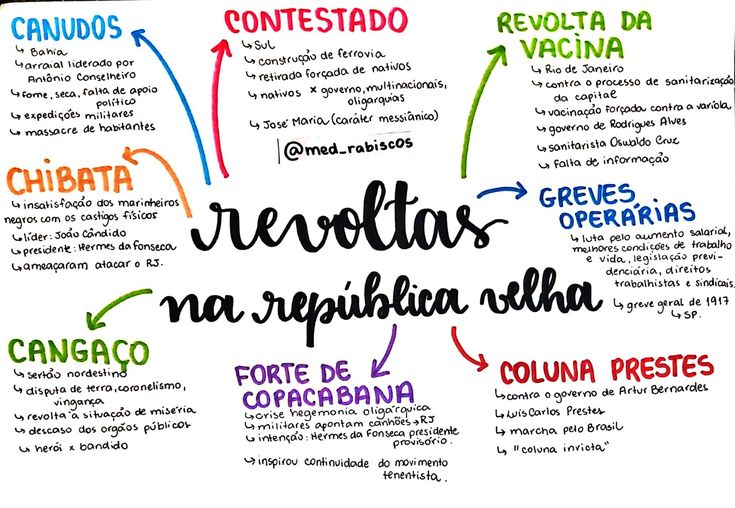 CANUDOS
↳ Bahia
↳ arraial liderado por
Antônio Conselheiro
↳ fome, seca, falta de apoio
político
↳ expedições militares
↳ massacre de habitantes
CONTESTADO
↳ Sul
↳ construção de ferrovia
↳ retirada forçada de nativos
↳ nativos x governo, multinacionais,
oligarquias
↳ José Maria (caráter messiânico)
@med_rabiscos
REVOLTA DA
VACINA
↳ Rio de Janeiro
↳ contra o processo de sanitarização
da capital
↳ vacinação forçada contra a varíola
↳ governo de Rodrigues Alves
↳ sanitarista Oswaldo Cruz
↳ falta de informação
CHIBATA
↳ insatisfação dos marinheiros
negros com os castigos físicos
↳ líder: João Cândido
↳ presidente: Hermes da Fonseca
↳ ameaçaram atacar o RJ.
revoltas
na república velha
GREVES
OPERÁRIAS
↳ luta pelo aumento salarial,
melhores condições de trabalho
e vida, legislação previ-
denciária, direitos
trabalhistas e sindicais.
↳ greve geral de 1917
↳ SP.
CANGAÇO
↳ sertão nordestino
↳ disputa de terra, coronelismo,
vingança
↳ revolta à situação de miséria
↳ descaso dos orgãos públicos
↳ herói x bandido
FORTE DE
COPACABANA
↳ crise hegemonia oligárquica
↳ militares apontam canhões → RJ
↳ intenção: Hermes da Fonseca presidente
provisório.
↳ inspirou continuidade do movimento
tenentista.
COLUNA PRESTES
↳ contra o governo de Artur Bernardes
↳ Luís Carlos Prestes
↳ marcha pelo Brasil
↳ "coluna invicta"